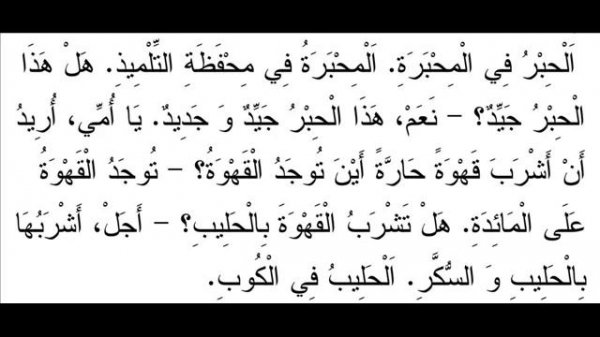 اَلْحِبْرُ فِي الْمِحْبَرَةِ. اَلْمِحْبَرَةُ فِي مِحْفَظَةِ التِّلْمِيذِ. هَلْ هَذَا
الْحِبْرُ جَيِّدٌ؟ – نَعَمْ، هَذَا الْحِبْرُ جَيِّدٌ وَ جَدِيدٌ. يَا أُمِّي، أُرِيدُ
أَنْ أَشْرَبَ قَهْوَةً حَارَّةً أَيْنَ تُوجَدُ الْقَهْوَةُ؟ – تُوجَدُ الْقَهْوَةُ
عَلَى الْمَائِدَةِ. هَلْ تَشْرَبُ الْقَهْوَةَ بِالْحَلِيبِ؟ – أَجَلْ، أَشْرَبُهَا
بِالْحَلِيبِ وَ السُّكَّرِ. اَلْحَلِيبُ فِي الْكُوبِ.